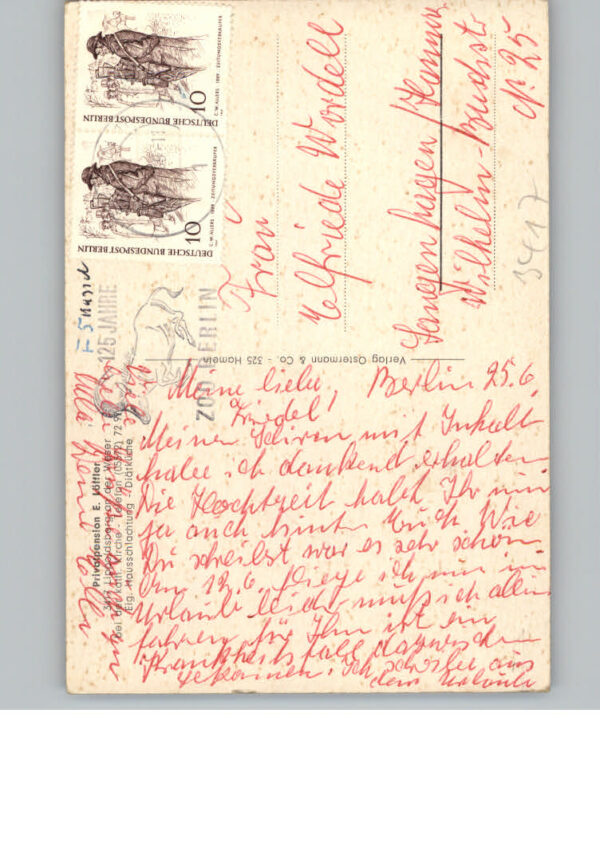 DEUTSCHE BUNDESPOST BERLIN
10
C. W. ALLERS · 1889 · ZEITUNGSVERKÄUFER
DEUTSCHE BUNDESPOST BERLIN
10
C. W. ALLERS · 1889 · ZEITUNGSVERKÄUFER
125 JAHRE
ZOO BERLIN
Frau
Elfriede Wordell
Langenhagen / Hannov
Wilhelm-Buschstr
25
3417
Verlag Ostermann & Co. - 325 Hameln
Privatpension E. Löffler
an der Weser
bei der kath. Kirche · Telefon
Eig. Hausschlachtung - Diätküche
Meine liebe Berlin 25.6.
Friedel!
Meinen mit Inhalt
habe ich dankend erhalten
Die Hochzeit habt Ihr nun
ja auch hinter Euch Wie
Du schreibst war es sehr schön
Am 12.6. fliege ich nun in
Urlaub leider muß ich allein
fahren, für Ihn ist ein
Krankheitsfall dazwischen
gekommen. Ich schreibe aus
dem Urlaub